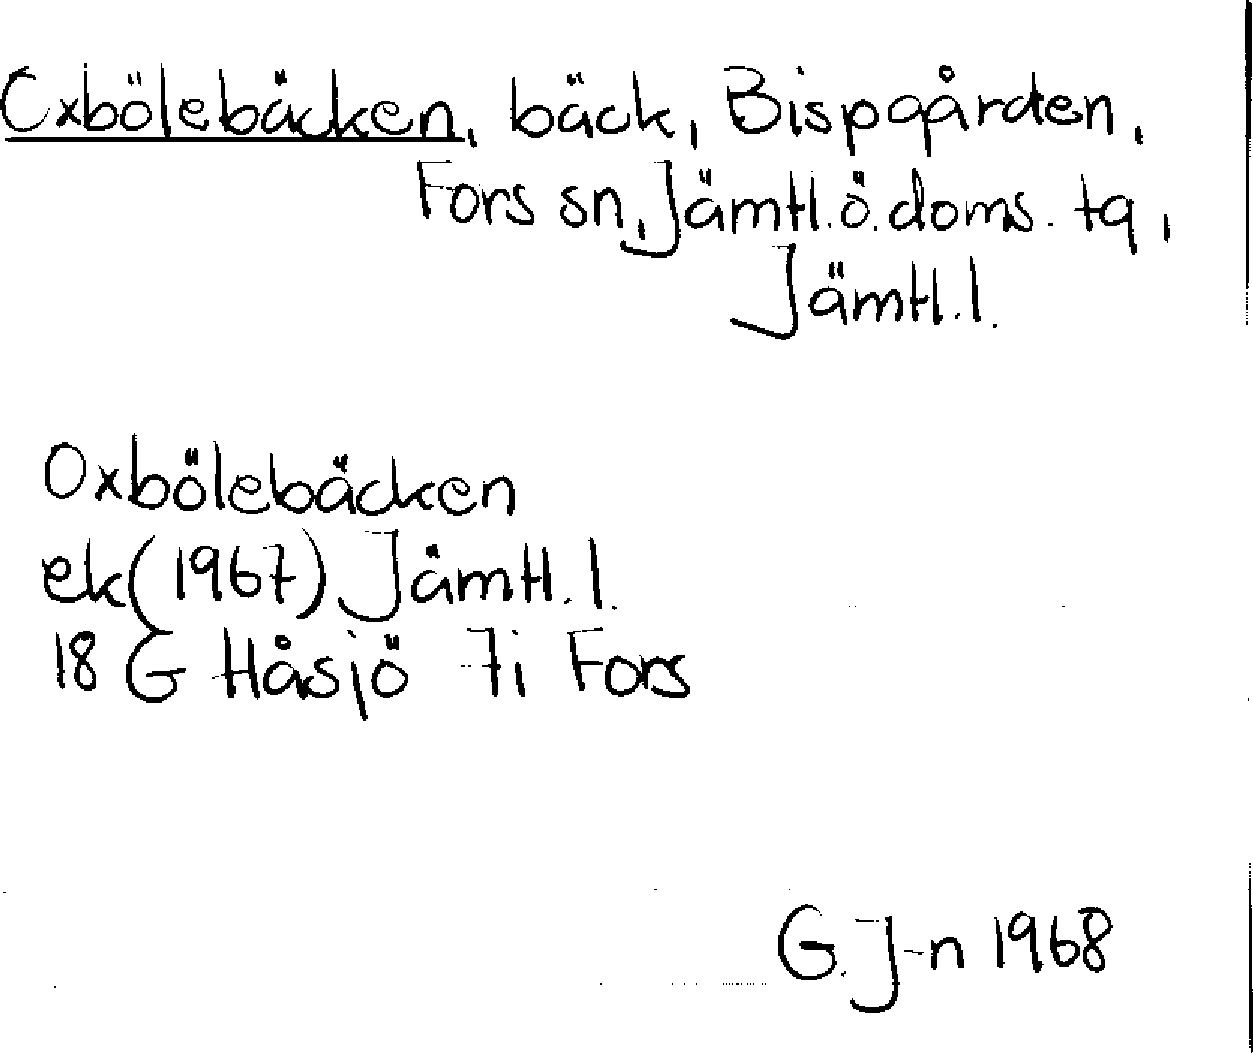 Oxbölebäcken, bäck, Bispgården,
Fors sn, Jämtl. ö. doms. tg,
Jämtl. l.
Oxbölebäcken
ek (1967) Jämtl. l.
18 G Håsjö 7i Fors
G. J-n 1968